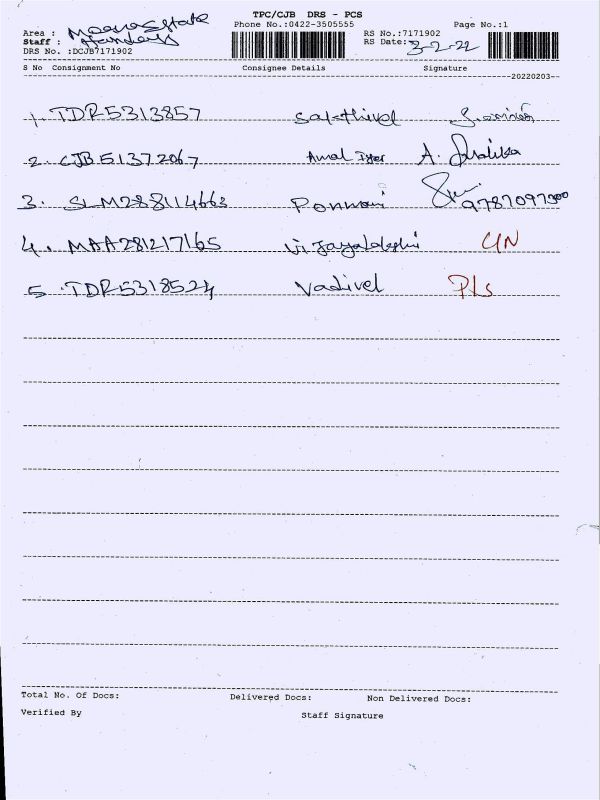 TPC/CJB DRS - PCS
Area : Phone No.:0422-3505555 Page No.:1
Staff : RS No.:7171902
DRS No. :DCJB7171902 RS Date: 3-2-22
S No Consignment No Consignee Details Signature
--20220203--
1. TDR5313857 Sakthivel
2. CJB51372067 Amal A.
3. SLM288114663 Ponmani
4. MAA281217165 Vijayalakshmi UN
5. TDR5318524 Vadivel PLS
Total No. Of Docs: Delivered Docs: Non Delivered Docs:
Verified By Staff Signature